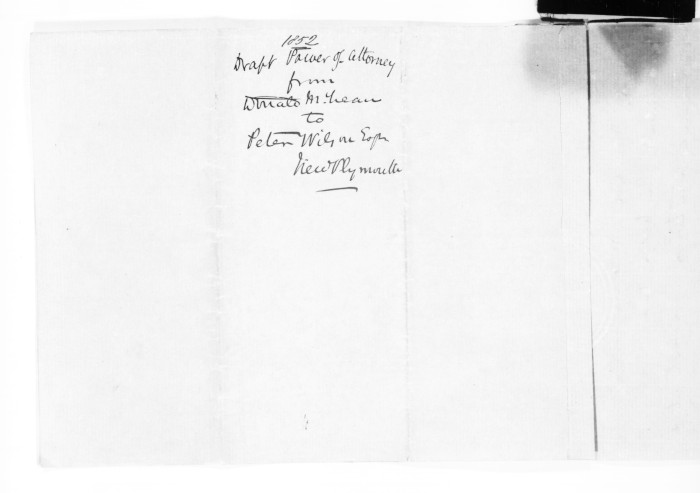 1852
Draft Power of Attorney
from
Donald McLean
to
Peter Wilson Esqr
New Plymouth